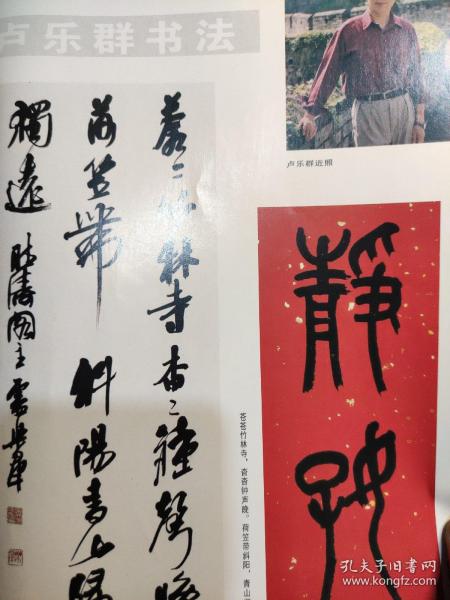 卢乐群书法
卢乐群近照
蒼〻竹林寺杳〻鐘聲晚
荷笠帶斜陽青山歸
獨遠
靜
苍苍竹林寺，杳杳钟声晚。荷笠带斜阳，青山
孔夫子旧书网